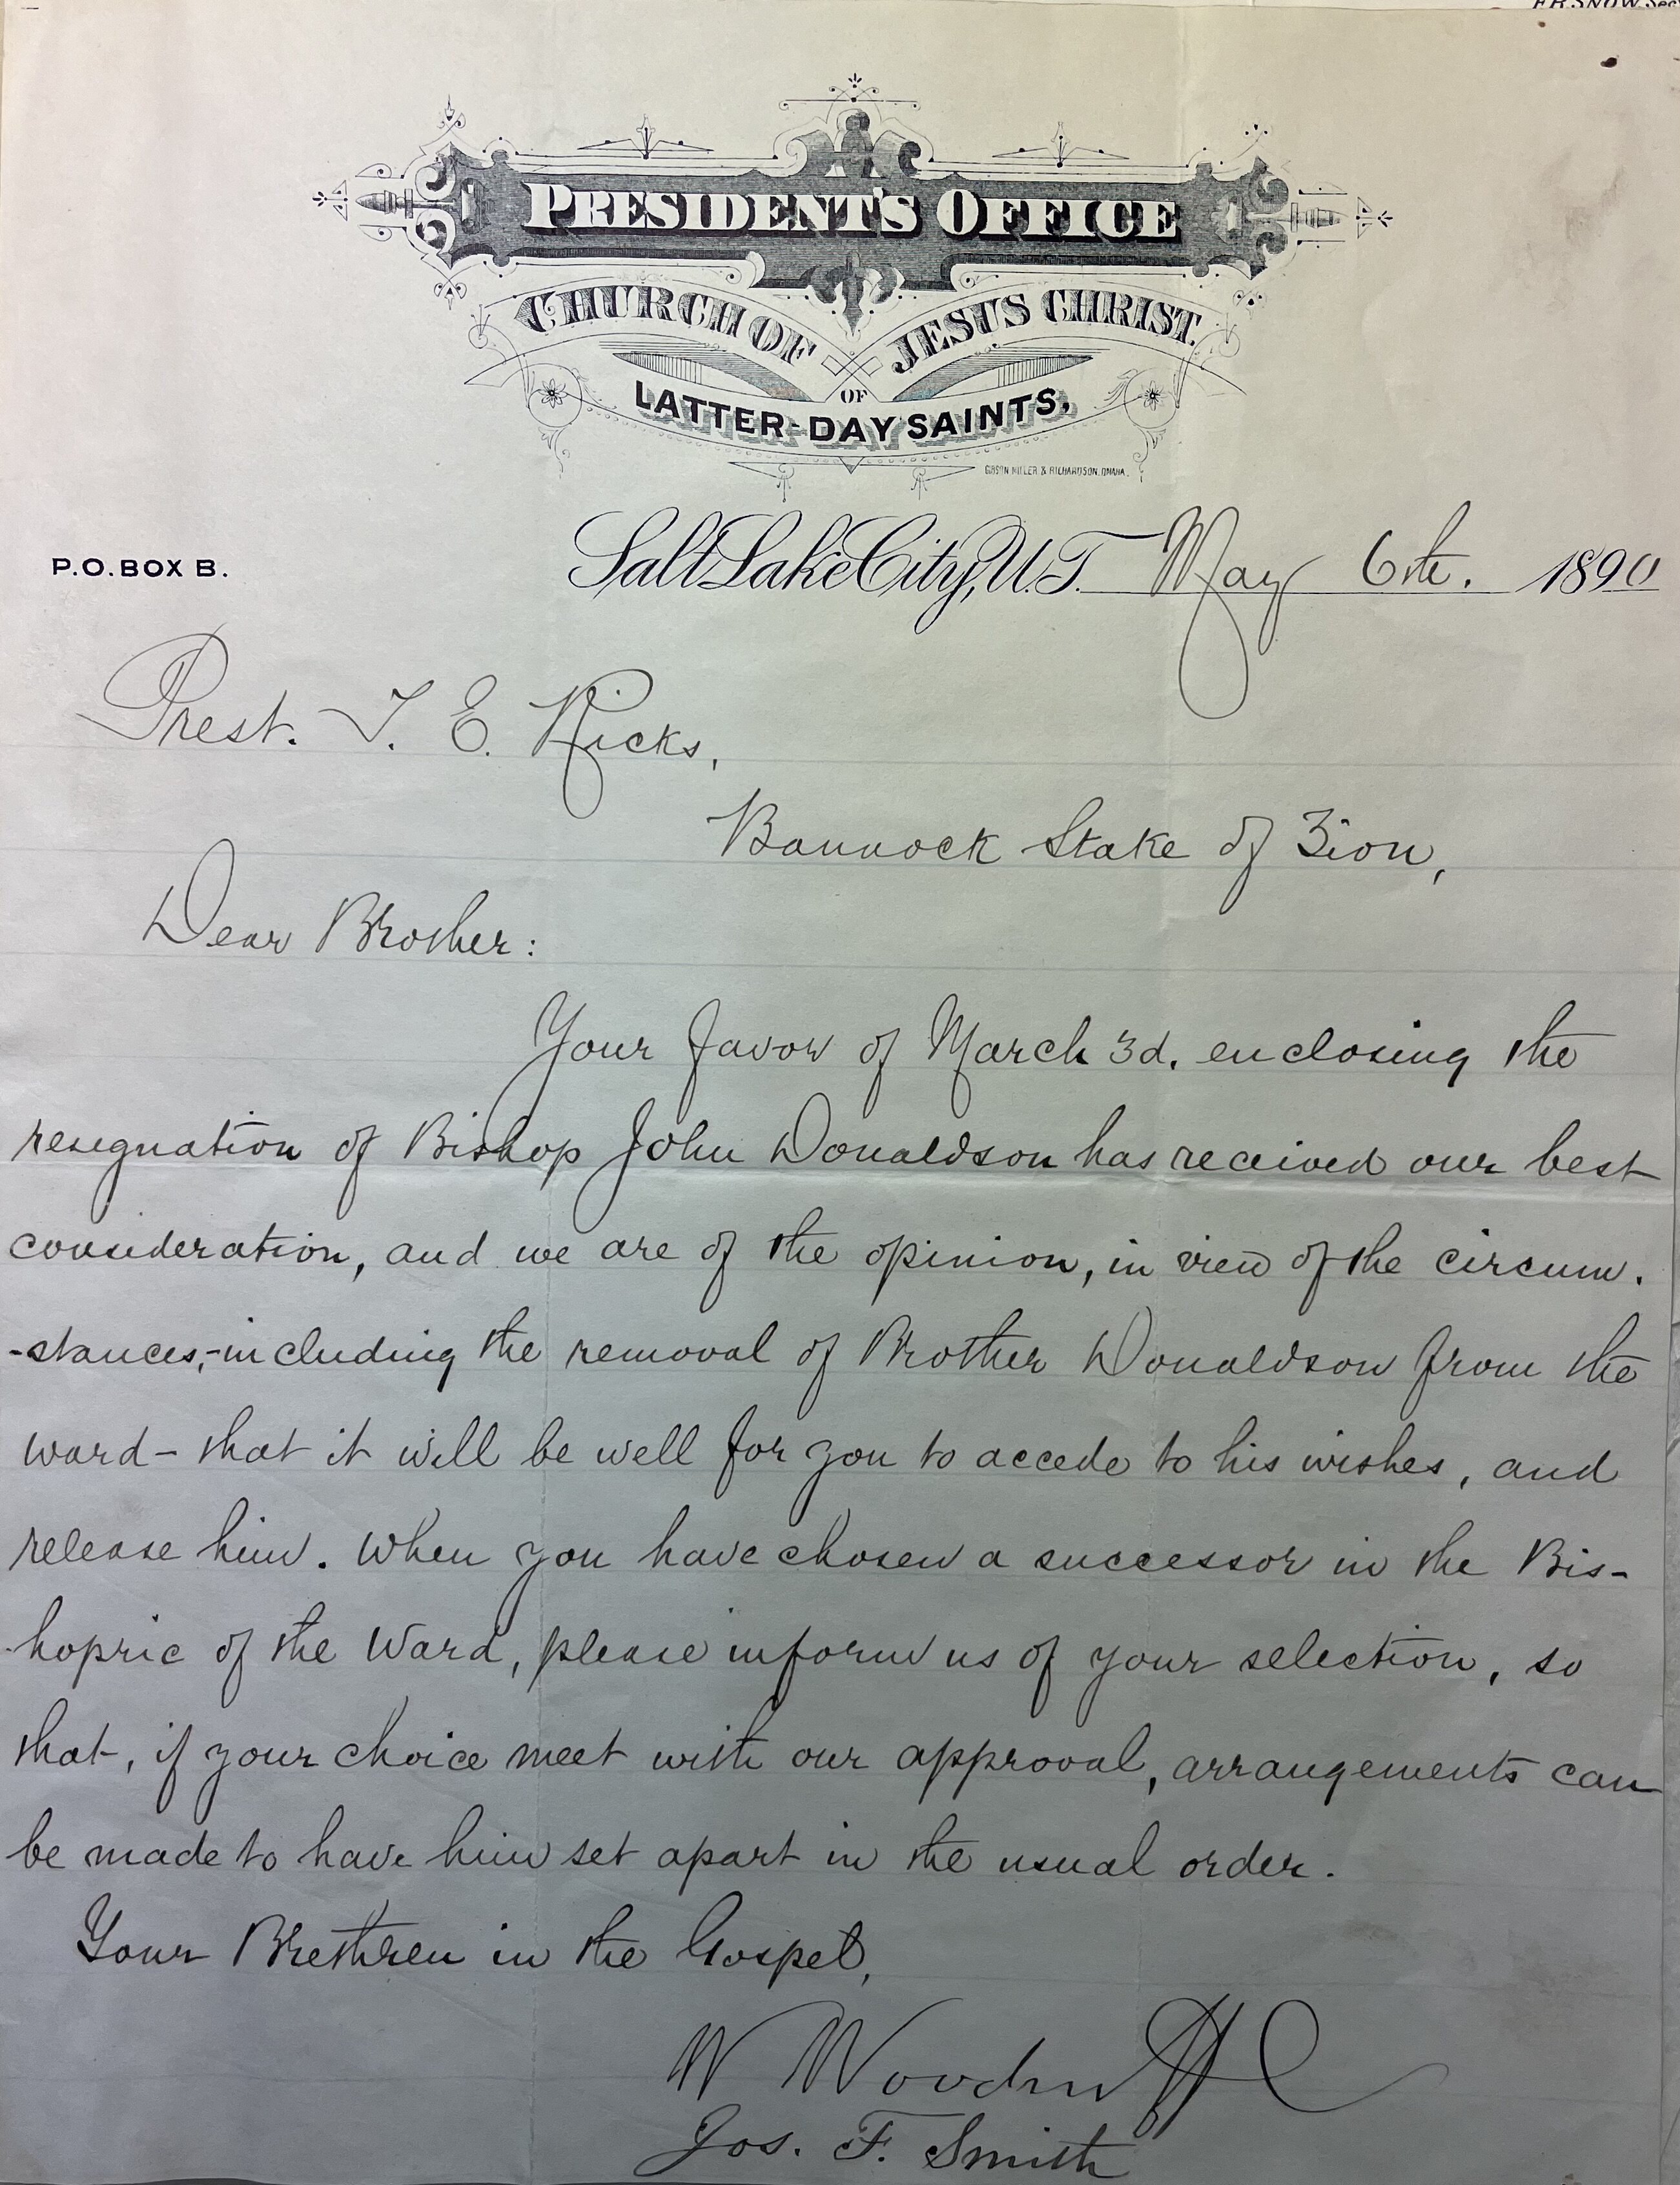 F.R.SNOW. Sec
PRESIDENT'S OFFICE
CHURCH OF JESUS CHRIST
OF
LATTER-DAY SAINTS,
GIBSON MILLER & RICHARDSON, OMAHA.
P.O. BOX B.
Salt Lake City, U.T. May 6th. 1890
Prest. T. E. Ricks,
Bannock Stake of Zion,
Dear Brother:
Your favor of March 3d. enclosing the
resignation of Bishop John Donaldson has received our best
consideration, and we are of the opinion, in view of the circum.
-stances,-including the removal of Brother Donaldson from the
ward- that it will be well for you to accede to his wishes, and
release him. When you have chosen a successor in the Bis-
hopric of the Ward, please inform us of your selection, so
that, if your choice meet with our approval, arrangements can
be made to have him set apart in the usual order.
Your Brethren in the Gospel,
W Woodruff
Jos. F. Smith